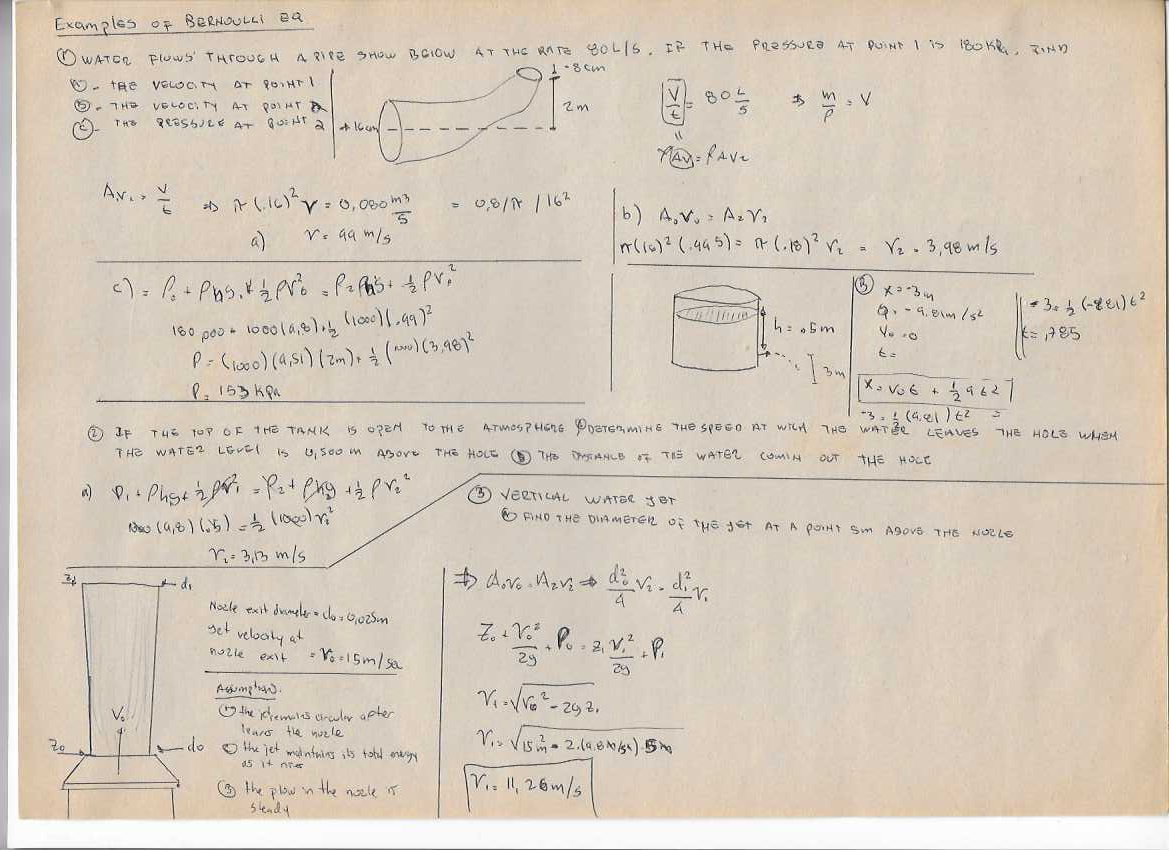 Examples of BERNOULLI EQ
① WATER FLOWS THROUGH A PIPE SHOW BELOW AT THE RATE 80L/S. IF THE PRESSURE AT POINT 1 IS 180KPa, FIND
a - THE VELOCITY AT POINT 1
b - THE VELOCITY AT POINT 2
c - THE PRESSURE AT POINT 2
16cm
8cm
2m
V/t = 80 L/S ⇒ m/ρ = V
"
ρAV₁ = ρAV₂
A₁V₁ = V/t ⇒ π(.16)² V = 0,080 m3/S = 0,8/π/16²
a) V = 99 m/s
b) A₀V₀ = A₂V₂
π(16)² (.995) = π(.18)² V₂ = V₂ = 3,98 m/s
c) = P₀ + ρhg + ½ρV₀² = P₂ ρhg + ½ρV₀²
180,000 + 1000(9,8) + ½(1000)(.99)²
P = (1000)(9,81)(2m) + ½(1000)(3,98)²
P = 153 KPa
h = .5m
3m
B x = -3m
a = -9.81m/s²
V₀ = 0
t =
x = V₀t + ½at2
-3 = ½(9.81)t²
-3 = ½(-9.81)t²
t = ,785
② IF THE TOP OF THE TANK IS OPEN TO THE ATMOSPHERE DETERMINE THE SPEED AT WICH THE WATER LEAVES THE HOLE WHEN
THE WATER LEVEL IS 0,500 m ABOVE THE HOLE ⓑ THE DISTANCE OF THE WATER COMIN OUT THE HOLE
a) P₁ + ρhg + ½ρV₁ = P₂ + ρhg + ½ρV₂²
1000(9,8)(.5) = ½(1000)V₂²
V₂ = 3,13 m/s
③ VERTICAL WATER JET
ⓐ FIND THE DIAMETER OF THE JET AT A POINT 5m ABOVE THE NOZLE
z₁
d₁
V₀
z₀
d₀
Nozle exit diameter = d₀ = 0,025m
Jet velocity at
nozle exit = V₀ = 15m/sa
Assumptions.
① the jet remains circular after
leavs the nozle
② the jet maintains its total energy
as it rises
③ the flow in the nozle is
steady
⇒ A₀V₀ = A₂V₂ ⇒ d₀²/4 V₂ = d₁²/4 V₁
Z₀ + V₀²/2g + P₀ = z₁ V₁²/2g + P₁
V₁ = √V₀² - 2gz₁
V₁ = √15m² - 2.(9.8m/sa) 5m
V₁ = 11,26 m/s